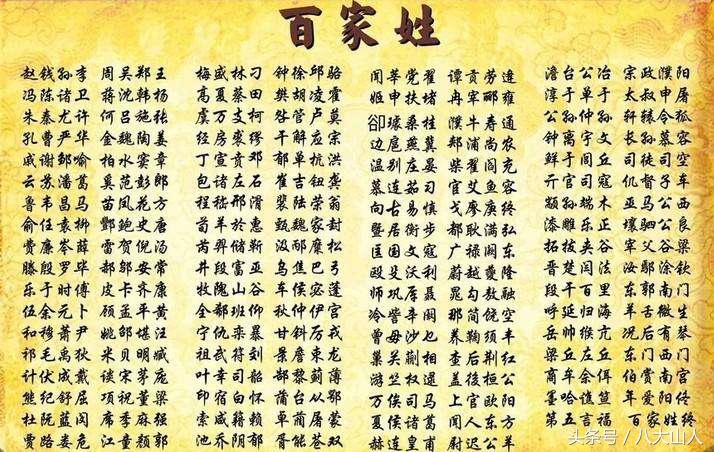 百家姓
赵钱孙李 周吴郑王
冯陈诸卫 蒋沈韩杨
朱秦尤许 何吕施张
孔曹严华 金魏陶姜
戚谢邹喻 柏水窦章
云苏潘葛 奚范彭郎
鲁韦昌马 苗凤花方
俞任袁柳 酆鲍史唐
费廉岑薛 雷贺倪汤
滕殷罗毕 郝邬安常
乐于时傅 皮卡齐康
伍余元卜 顾孟平黄
和穆萧尹 姚邵堪汪
祁毛禹狄 米贝明臧
计伏成戴 谈宋茅庞
熊纪舒屈 项祝董梁
杜阮蓝闵 席季麻强
贾路娄危 江童颜郭
梅盛林刁 钟徐邱骆
高夏蔡田 樊胡凌霍
虞万支柯 昝管卢莫
经房裘缪 干解应宗
丁宣贲邓 郁单杭洪
包诸左石 崔吉钮龚
程嵇邢滑 裴陆荣翁
荀羊於惠 甄魏家封
芮羿储靳 汲邴糜松
井段富巫 乌焦巴弓
牧隗山谷 车侯宓蓬
全郗班仰 秋仲伊宫
宁仇栾暴 甘斜厉戎
祖武符刘 景詹束龙
叶幸司韶 郜黎蓟薄
印宿白怀 蒲邰从鄂
索咸籍赖 卓蔺屠蒙
池乔阴郁 胥能苍双
闻莘党翟 谭贡劳逄
姬申扶堵 冉宰郦雍
卻璩桑桂 濮牛寿通
边扈燕冀 郏浦尚农
温别庄晏 柴瞿阎充
慕连茹习 宦艾鱼容
向古易慎 戈廖庾终
暨居衡步 都耿满弘
匡国文寇 广禄阙东
欧殳沃利 蔚越夔隆
师巩厍聂 晁勾敖融
冷訾辛阚 那简饶空
曾毋沙乜 养鞠须丰
巢关蒯相 查后荆红
游竺权逯 盖益桓公
万俟司马 上官欧阳
夏侯诸葛 闻人东方
赫连皇甫 尉迟公羊
澹台公冶 宗政濮阳
淳于单于 太叔申屠
公孙仲孙 轩辕令狐
钟离宇文 长孙慕容
鲜于闾丘 司徒司空
亓官司寇 仉督子车
颛孙端木 巫马公西
漆雕乐正 壤驷公良
拓跋夹谷 宰父谷梁
晋楚闫法 汝鄢涂钦
段干百里 东郭南门
呼延归海 羊舌微生
岳帅缑亢 况后有琴
梁丘左丘 东门西门
商牟佘佴 伯赏南宫
墨哈谯笪 年爱阳佟
第五言福 百家姓终
头条号 / 八大山人